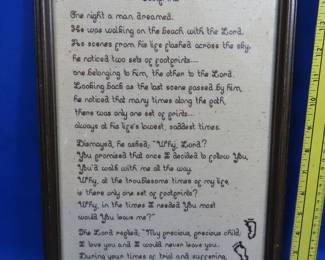 One night a man dreamed.
He was walking on the beach with the Lord.
As scenes from his life flashed across the sky,
he noticed two sets of footprints...
one belonging to him, the other to the Lord.
Looking back as the last scene passed by him,
he noticed that many times along the path,
there was only one set of prints...
always at his life's lowest, saddest times.
Dismayed, he asked; "Why, Lord?
You promised that once I decided to follow You,
You'd walk with me all the way.
Why, at the troublesome times of my life,
is there only one set of footprints?
Why, in the times I needed You most
would You leave me?"
The Lord replied; "My precious, precious child;
I love you and I would never leave you.
During your times of trial and suffering,